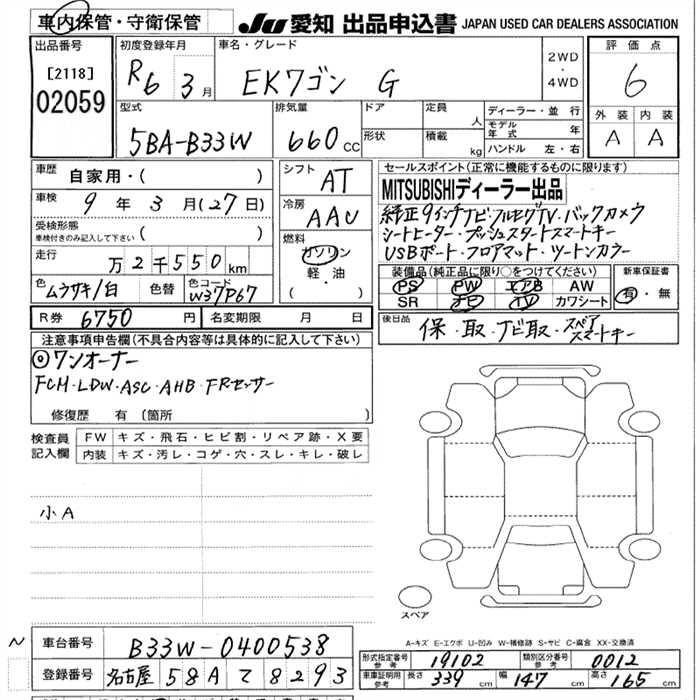 車内保管・守衛保管
JU 愛知 出品申込書 JAPAN USED CAR DEALERS ASSOCIATION
出品番号
[2118]
02059
初度登録年月
R6 3月
車名・グレード
EKワゴン G
2WD
・
4WD
評価点
6
外装 内装
A A
型式
5BA-B33W
排気量
660 CC
ドア
形状
定員 人
積載 kg
ディーラー・並行
モデル年式 年
ハンドル 左・右
車歴
自家用・( )
車検
9年3月(27日)
受検形態
車検付きのみ記入して下さい ( )
走行
万2千550km
色 ムラサキ/白
色替
色コード W37P67
シフト AT
冷房 AAC
燃料
ガソリン
軽・油
( )
セールスポイント(正常に機能するものに限ります)
MITSUBISHIディーラー出品
純正9インチナビ・フルセグTV・バックカメラ
シートヒーター・プッシュスタートスマートキー
USBポート・フロアマット・ツートンカラー
装備品(純正品に限り○をつけてください)
PS PW エアB AW
SR ナビ TV カワシート
新車保証書
有・無
R券 6750円
名変期限 月 日
後日品
保・取・ナビ取・スペアスマートキー
注意事項申告欄(不具合内容等は具体的に記入して下さい)
◎ワンオーナー
FCM・LDW・ASC・AHB・FRセンサー
修復歴 有(箇所 )
検査員記入欄
FW キズ・飛石・ヒビ割・リペア跡・X要
内装 キズ・汚レ・コゲ・穴・スレ・キレ・破レ
小A
スペア
A-キズ E-エクボ U-凹み W-補修跡 S-サビ C-腐食 XX-交換済
車台番号 B33W-0400538
登録番号 名古屋 58A て8293
形式指定番号 参考 19102
類別区分番号 参考 0012
車庫証明用 参考
長さ 339 cm
幅 147 cm
高さ 165 cm